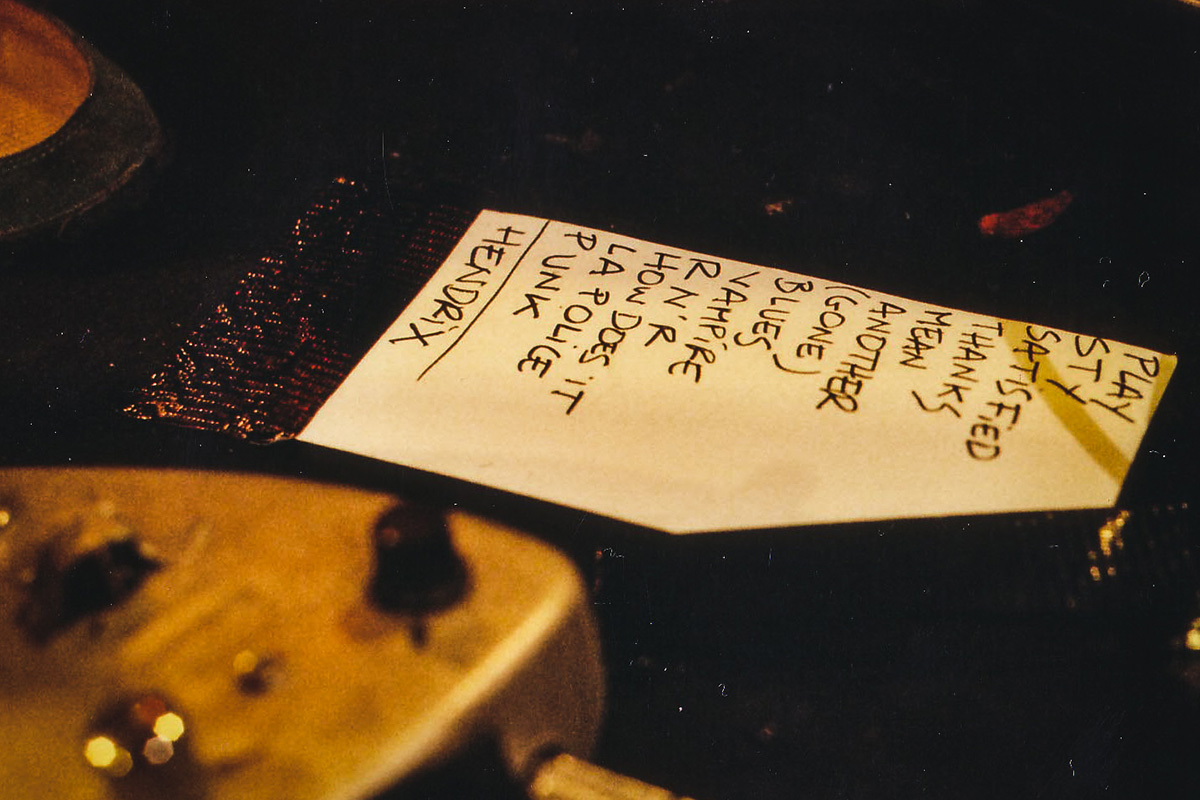 PLAY
STY
SATiSFiED
THANKS
MEAN
ANOTHER
(GONE)
BLUES
VAMPiRE
R N' R
HOW DOES iT
LA POLiCE
P UNK
HENDRiX